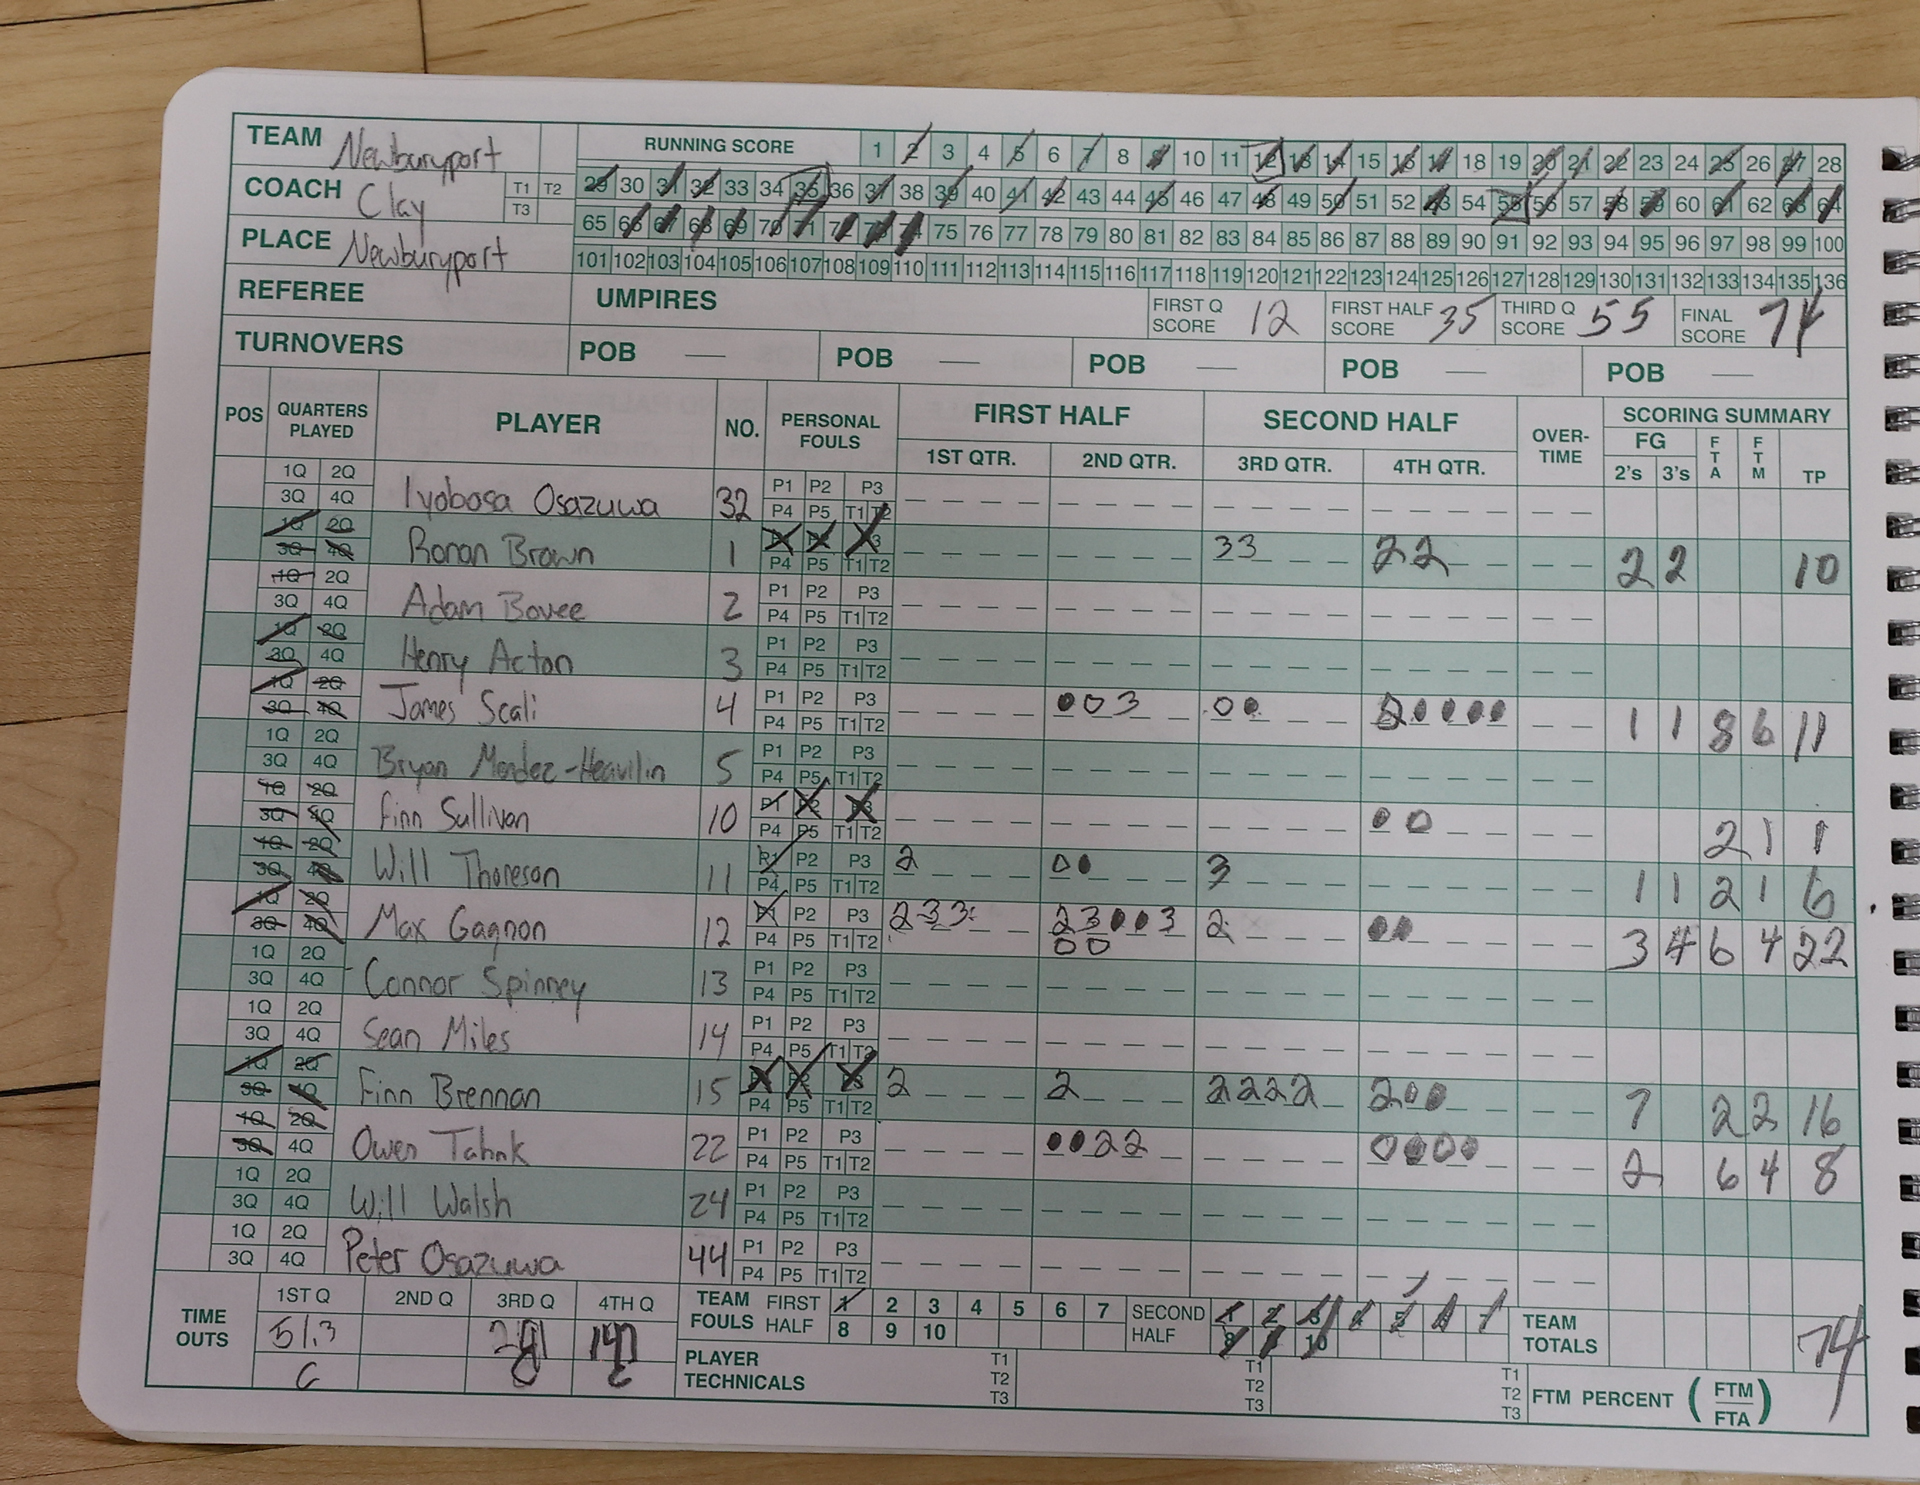 TEAM Newburyport RUNNING SCORE 1 2 3 4 5 6 7 8 9 10 11 12 13 14 15 16 17 18 19 20 21 22 23 24 25 26 27 28
COACH Clay T1 T2 T3 29 30 31 32 33 34 35 36 37 38 39 40 41 42 43 44 45 46 47 48 49 50 51 52 53 54 55 56 57 58 59 60 61 62 63 64
PLACE Newburyport 65 66 67 68 69 70 71 72 73 74 75 76 77 78 79 80 81 82 83 84 85 86 87 88 89 90 91 92 93 94 95 96 97 98 99 100
101 102 103 104 105 106 107 108 109 110 111 112 113 114 115 116 117 118 119 120 121 122 123 124 125 126 127 128 129 130 131 132 133 134 135 136
REFEREE UMPIRES FIRST Q SCORE 12 FIRST HALF SCORE 35 THIRD Q SCORE 55 FINAL SCORE 74
TURNOVERS POB — POB — POB — POB — POB —
POS QUARTERS PLAYED PLAYER NO. PERSONAL FOULS FIRST HALF SECOND HALF OVER-TIME SCORING SUMMARY
1ST QTR. 2ND QTR. 3RD QTR. 4TH QTR. FG 2's 3's FTA FTM TP
1Q 2Q 3Q 4Q Iyobosa Osazuwa 32 P1 P2 P3 P4 P5 T1 T2
1Q 2Q 3Q 4Q Ronan Brown 1 P1 P2 P3 P4 P5 T1 T2 33 22 2 2 10
1Q 2Q 3Q 4Q Adam Bovee 2 P1 P2 P3 P4 P5 T1 T2
1Q 2Q 3Q 4Q Henry Acton 3 P1 P2 P3 P4 P5 T1 T2
1Q 2Q 3Q 4Q James Scali 4 P1 P2 P3 P4 P5 T1 T2 ●03 0● 2●●●● 1 1 8 6 11
1Q 2Q 3Q 4Q Bryan Mendez-Heavilin 5 P1 P2 P3 P4 P5 T1 T2
1Q 2Q 3Q 4Q Finn Sullivan 10 P1 P2 P3 P4 P5 T1 T2 ●0 2 1 1
1Q 2Q 3Q 4Q Will Thoreson 11 P1 P2 P3 P4 P5 T1 T2 2 0● 3 1 1 2 1 6
1Q 2Q 3Q 4Q Max Gagnon 12 P1 P2 P3 P4 P5 T1 T2 233 23●●3 00 2 ●● 3 4 6 4 22
1Q 2Q 3Q 4Q Connor Spinney 13 P1 P2 P3 P4 P5 T1 T2
1Q 2Q 3Q 4Q Sean Miles 14 P1 P2 P3 P4 P5 T1 T2
1Q 2Q 3Q 4Q Finn Brennan 15 P1 P2 P3 P4 P5 T1 T2 2 2 2222 2●● 7 2 2 16
1Q 2Q 3Q 4Q Owen Tahnk 22 P1 P2 P3 P4 P5 T1 T2 ●●22 0●0● 2 6 4 8
1Q 2Q 3Q 4Q Will Walsh 24 P1 P2 P3 P4 P5 T1 T2
1Q 2Q 3Q 4Q Peter Osazuwa 44 P1 P2 P3 P4 P5 T1 T2
TIME OUTS 1ST Q 2ND Q 3RD Q 4TH Q TEAM FOULS FIRST HALF 1 2 3 4 5 6 7 8 9 10 SECOND HALF 1 2 3 4 5 6 7 8 9 10 TEAM TOTALS 74
51.3
C
PLAYER TECHNICALS T1 T2 T3 T1 T2 T3 T1 T2 T3 FTM PERCENT (FTM/FTA)